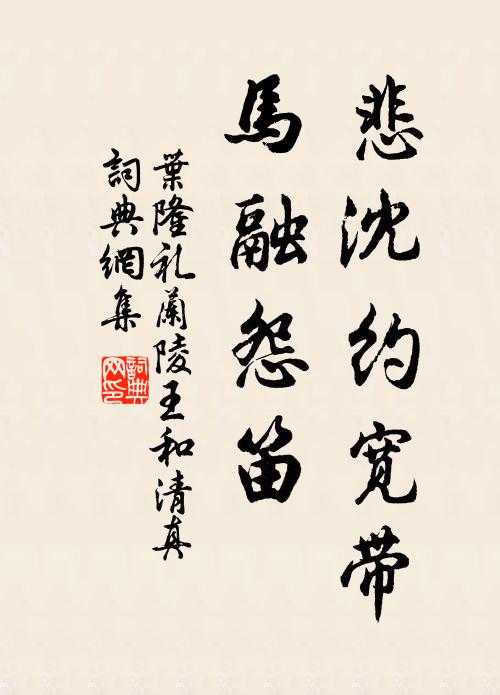 悲沈约宽带
馬融怨笛
葉隆礼蘭陵王和清真
詞典網集
詞典网印